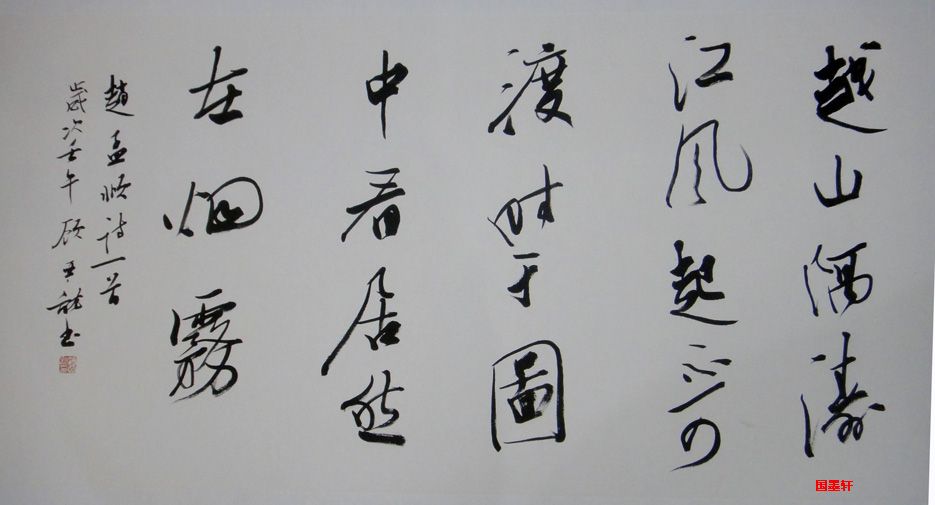 越山隔濤
江風起不可
渡時于圖
中看居然
在烟霧
趙孟順詩一首
歲次壬午 顧 龍書
国墨轩